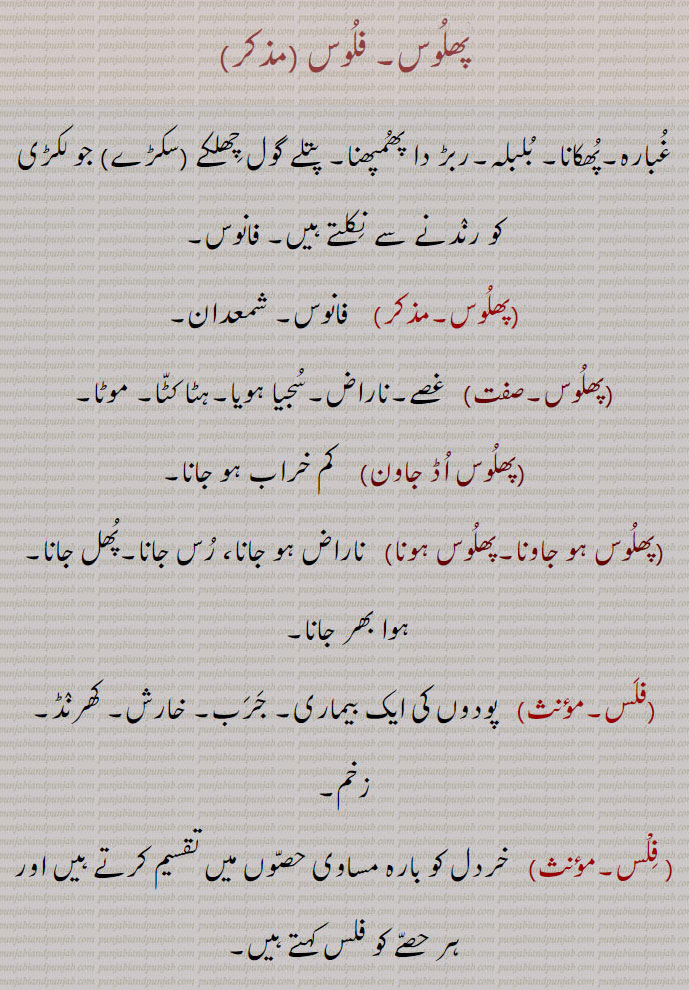 پھلُوس۔ فلُوس (مذکر)
غُبارہ۔پُھکانا۔ بُلبلہ۔ربڑ دا پھُمپھنا۔ پتلے گول چِھلکے (سکڑے) جو لکڑی
کو رنْدنے سے نِکلتے ہیں۔ فانوس۔
(پھلُوس۔مذکر) فانوس۔ شمعدان۔
(پھلُوس۔صفت) غصے۔ناراض۔سُجیا ہویا۔ہٹا کٹّا۔ موٹا۔
(پھلُوس اُڈ جاون) کم خراب ہو جانا۔
(پھلُوس ہو جاونا۔پھلُوس ہونا) ناراض ہو جانا، رُس جانا۔پُھل جانا۔
ہوا بھر جانا۔
(فلَس۔مؤنث) پودوں کی ایک بیماری۔ جَرَب۔ خارش۔ کھرنْڈ۔
زخم۔
(فِلْس۔مؤنث) خردل کو بارہ مساوی حصّوں میں تقسیم کرتے ہیں اور
ہر حصّے کو فلس کہتے ہیں۔